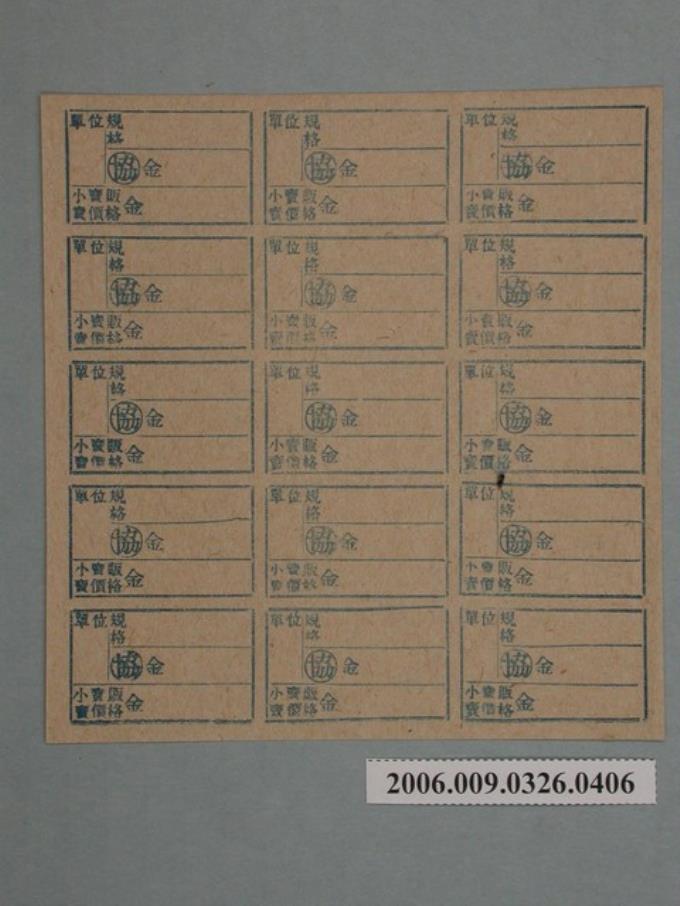 單位規格
協 金
小賣販賣價格 金
單位規格
協 金
小賣販賣價格 金
單位規格
協 金
小賣販賣價格 金
單位規格
協 金
小賣販賣價格 金
單位規格
協 金
小賣販賣價格 金
單位規格
協 金
小賣販賣價格 金
單位規格
協 金
小賣販賣價格 金
單位規格
協 金
小賣販賣價格 金
單位規格
協 金
小賣販賣價格 金
單位規格
協 金
小賣販賣價格 金
單位規格
協 金
小賣販賣價格 金
單位規格
協 金
小賣販賣價格 金
單位規格
協 金
小賣販賣價格 金
單位規格
協 金
小賣販賣價格 金
單位規格
協 金
小賣販賣價格 金
2006.009.0326.0406